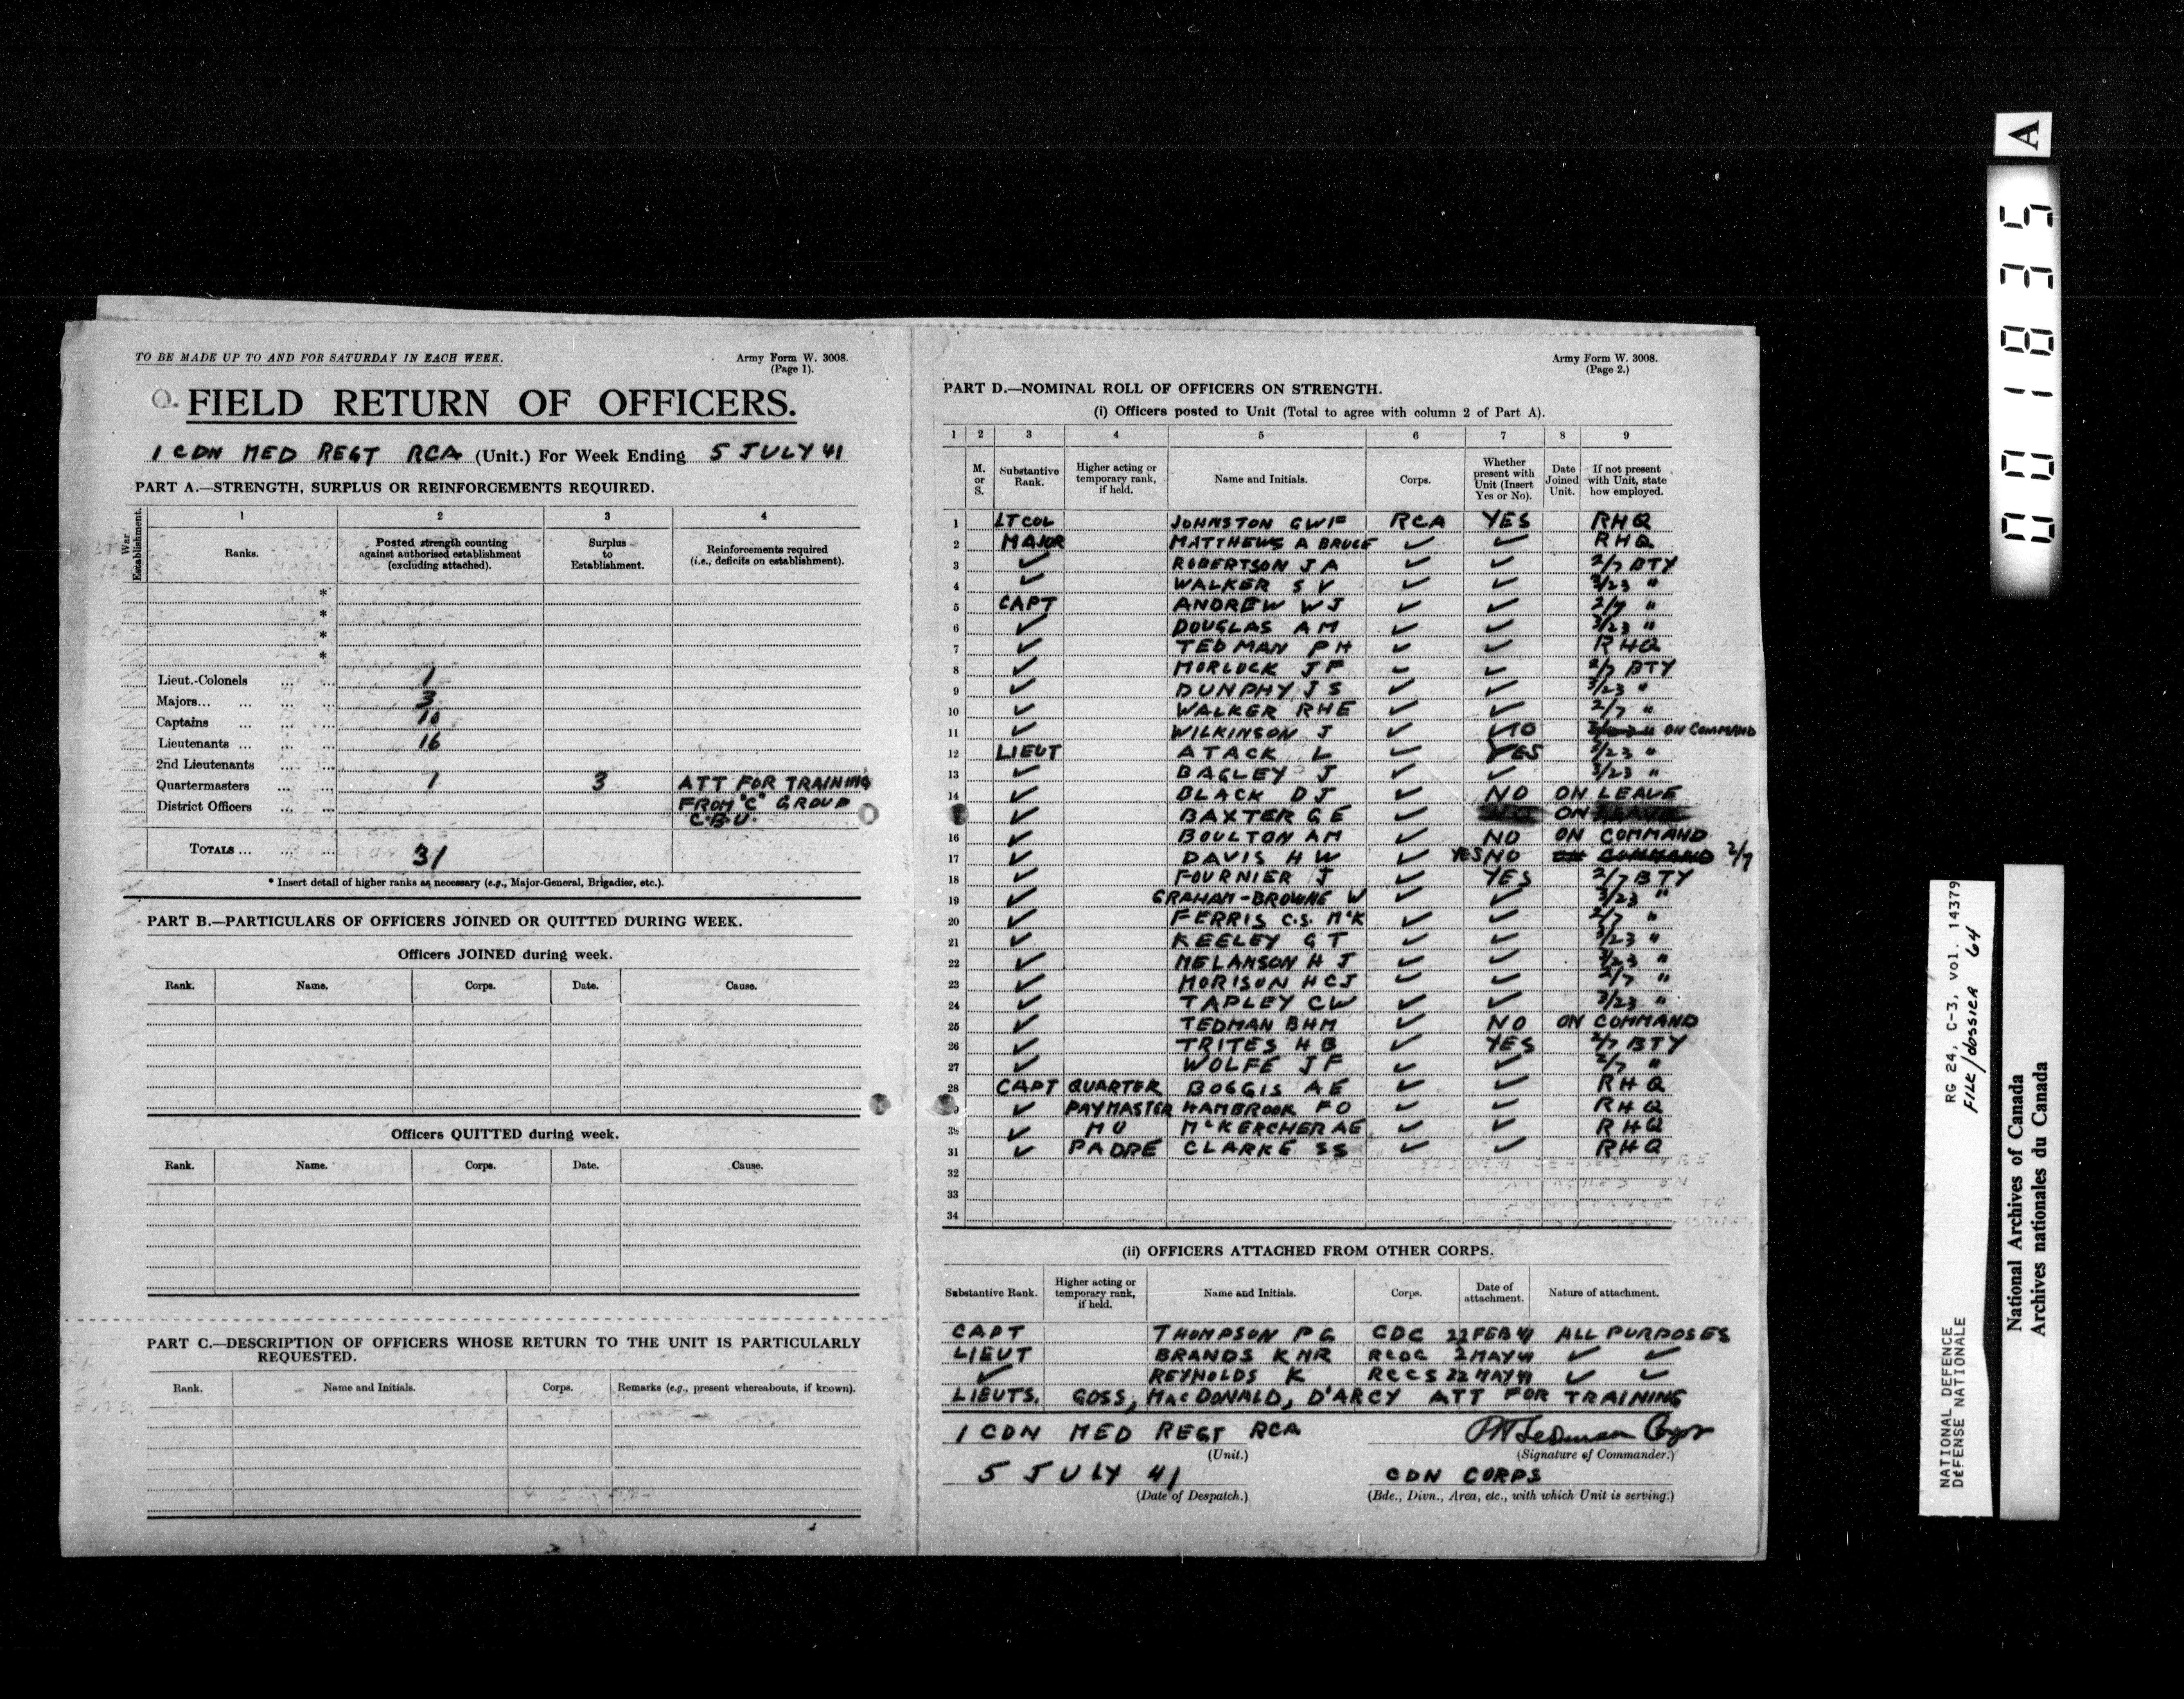 TO BE MADE UP TO AND FOR SATURDAY IN EACH WEEK.
Army Form W. 3008.
(Page 1).
FIELD RETURN OF OFFICERS.
1 CDN MED REGT RCA (Unit.) For Week Ending 5 JULY 41
PART A.—STRENGTH, SURPLUS OR REINFORCEMENTS REQUIRED.
War Establishment.
1 2 3 4
Ranks. Posted strength counting against authorised establishment (excluding attached). Surplus to Establishment. Reinforcements required (i.e., deficits on establishment).
*
*
*
*
Lieut.-Colonels ... ... 1
Majors... ... ... ... 3
Captains ... ... ... 10
Lieutenants ... ... ... 16
2nd Lieutenants ... ...
Quartermasters ... ... 1 3 ATT FOR TRAINING
District Officers ... ... FROM "C" GROUP
C.B.U.
TOTALS ... ... ... 31
* Insert detail of higher ranks as necessary (e.g., Major-General, Brigadier, etc.).
PART B.—PARTICULARS OF OFFICERS JOINED OR QUITTED DURING WEEK.
Officers JOINED during week.
Rank. Name. Corps. Date. Cause.
Officers QUITTED during week.
Rank. Name. Corps. Date. Cause.
PART C.—DESCRIPTION OF OFFICERS WHOSE RETURN TO THE UNIT IS PARTICULARLY
REQUESTED.
Rank. Name and Initials. Corps. Remarks (e.g., present whereabouts, if known).
Army Form W. 3008.
(Page 2.)
PART D.—NOMINAL ROLL OF OFFICERS ON STRENGTH.
(i) Officers posted to Unit (Total to agree with column 2 of Part A).
1 2 3 4 5 6 7 8 9
M. or S. Substantive Rank. Higher acting or temporary rank, if held. Name and Initials. Corps. Whether present with Unit (Insert Yes or No). Date Joined Unit. If not present with Unit, state how employed.
1 LT COL JOHNSTON GWF RCA YES RHQ
2 MAJOR MATTHEWS A BRUCE ✓ ✓ RHQ
3 ✓ ROBERTSON J A ✓ ✓ 2/7 BTY
4 ✓ WALKER S V ✓ ✓ 3/23 "
5 CAPT ANDREW WJ ✓ ✓ 2/7 "
6 ✓ DOUGLAS AM ✓ ✓ 3/23 "
7 ✓ TEDMAN PH ✓ ✓ RHQ
8 ✓ MORLOCK JF ✓ ✓ 2/7 BTY
9 ✓ DUNPHY JS ✓ ✓ 3/23 "
10 ✓ WALKER RHE ✓ ✓ 2/7 "
11 ✓ WILKINSON J ✓ NO ON COMMAND
12 LIEUT ATACK L ✓ YES 3/23 "
13 ✓ BAGLEY J ✓ ✓ 3/23 "
14 ✓ BLACK DJ ✓ NO ON LEAVE
✓ BAXTER GE ✓ ON LEAVE
16 ✓ BOULTON AM ✓ NO ON COMMAND
17 ✓ DAVIS HW ✓ YES NO ON COMMAND 2/7
18 ✓ FOURNIER J ✓ YES 2/7 BTY
19 ✓ GRAHAM-BROWNE W ✓ ✓ 3/23 "
20 ✓ FERRIS C.S. McK ✓ ✓ 2/7 "
21 ✓ KEELEY GT ✓ ✓ 3/23 "
22 ✓ MELANSON HJ ✓ ✓ 3/23 "
23 ✓ MORISON HCJ ✓ ✓ 2/7 "
24 ✓ TAPLEY CW ✓ ✓ 3/23 "
25 ✓ TEDMAN BHM ✓ NO ON COMMAND
26 ✓ TRITES HB ✓ YES 2/7 BTY
27 ✓ WOLFE JF ✓ ✓ 2/7 "
28 CAPT QUARTER BOGGIS AE ✓ ✓ RHQ
9 ✓ PAYMASTER HAMBROOK FO ✓ ✓ RHQ
30 ✓ MO McKERCHER AE ✓ ✓ RHQ
31 ✓ PADRE CLARKE SS ✓ ✓ RHQ
32
33
34
(ii) OFFICERS ATTACHED FROM OTHER CORPS.
Substantive Rank. Higher acting or temporary rank, if held. Name and Initials. Corps. Date of attachment. Nature of attachment.
CAPT THOMPSON PG CDC 22 FEB 41 ALL PURPOSES
LIEUT BRANDS KNR RCOC 2 MAY 41 ✓ ✓
✓ REYNOLDS K RCCS 22 MAY 41 ✓ ✓
LIEUTS. GOSS, MacDONALD, D'ARCY ATT FOR TRAINING
1 CDN MED REGT RCA PHTedman Capt
(Unit.) (Signature of Commander.)
5 JULY 41 CDN CORPS
(Date of Despatch.) (Bde., Divn., Area, etc., with which Unit is serving.)
001835 A
RG 24, C-3, vol. 14379
FILE/dossier 64
NATIONAL DEFENCE
DEFENSE NATIONALE
National Archives of Canada
Archives nationales du Canada